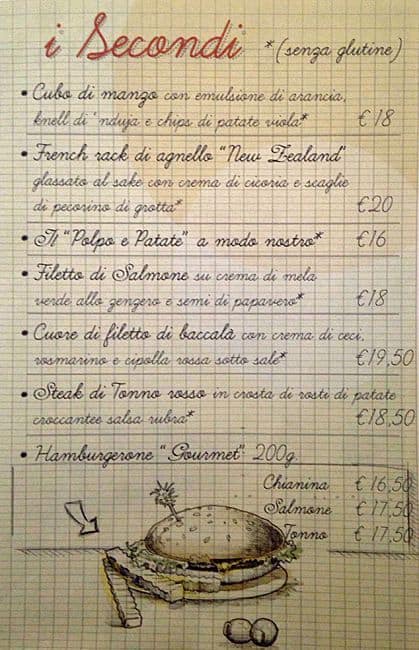 i Secondi *(senza glutine)
• Cubo di manzo con emulsione di arancia,
knell di 'nduja e chips di patate viola* €18
• French rack di agnello "New Zealand"
glassato al sake con crema di cicoria e scaglie
di pecorino di grotta* €20
• Il "Polpo e Patate" a modo nostro* €16
• Filetto di Salmone su crema di mela
verde allo gengero e semi di papavero* €18
• Cuore di filetto di baccalà con crema di ceci,
rosmarino e cipolla rossa sotto sale* €19,50
• Steak di Tonno rosso in crosta di rosti di patate
croccantee salsa rubra* €18,50
• Hamburgerone "Gourmet" 200g.
Chianina € 16,50
Salmone € 17,50
Tonno € 17,50